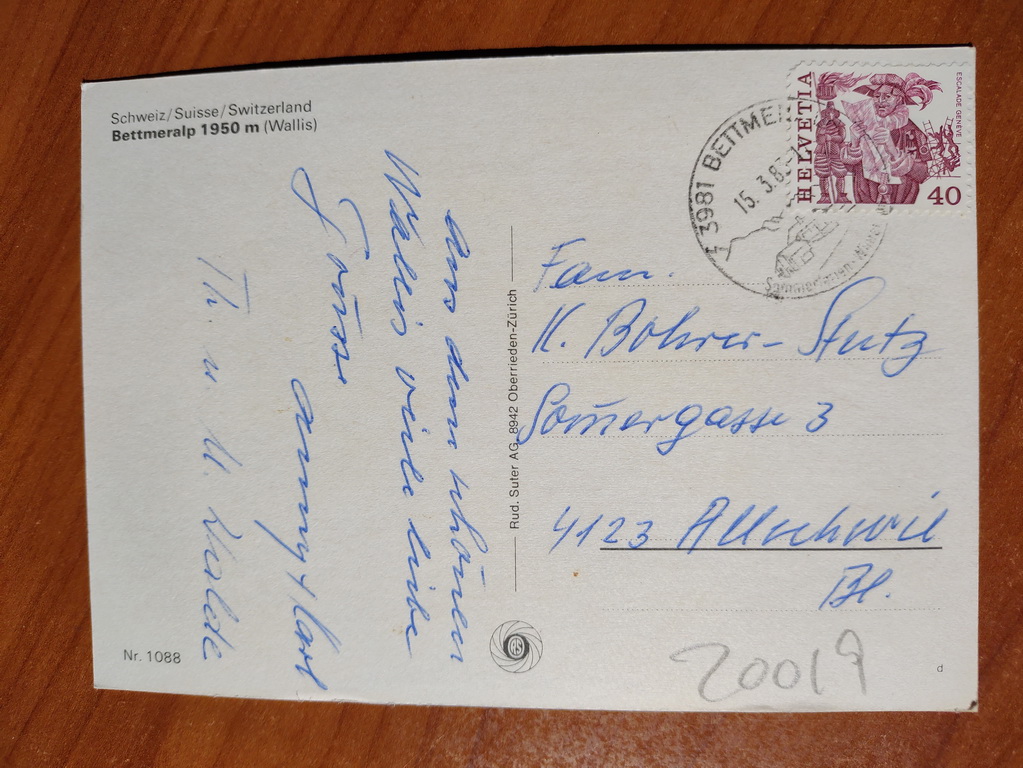 Schweiz/Suisse/Switzerland
Bettmeralp 1950 m (Wallis)
Aus dem schönen
Wallis viele liebe
Grüsse
Th. u
Nr. 1088
Rud. Suter AG, 8942 Oberrieden-Zürich
RS
3981 BETTMER
15. 3.8
HELVETIA
ESCALADE GENÈVE
40
Fam.
K. Bohrer-Stutz
Somergasse 3
4123 Allschwil
Bl.
20019
d